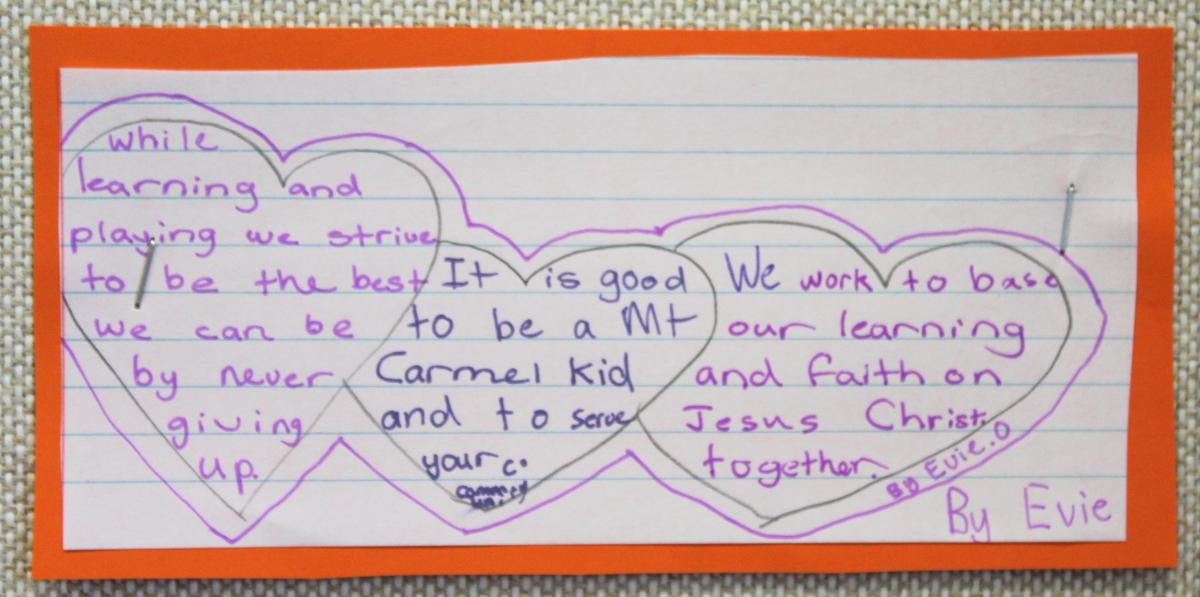 while
learning and
playing we strive
to be the best
we can be
by never
giving
up.
It is good
to be a Mt
Carmel kid
and to serve
your c.
We work to base
our learning
and faith on
Jesus Christ.
together.
By Evie.O
By Evie